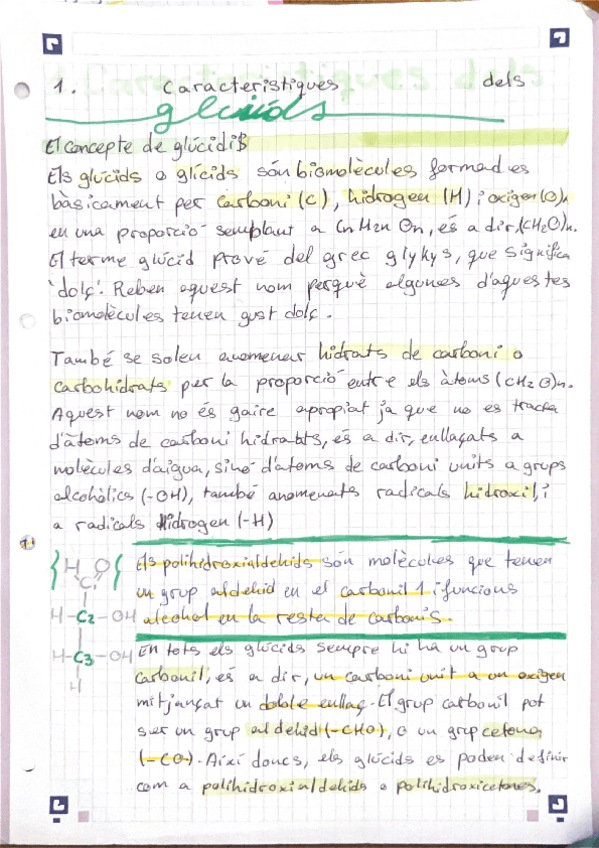 1. Característiques dels
glúcids
El concepte de glúcids
Els glúcids o glícids són biomolècules formades
bàsicament per carboni (C), hidrogen (H) i oxigen (O),
en una proporció semblant a CnH2nOn, és a dir, (CH2O)n.
El terme glúcid prové del grec glykys, que significa
'dolç'. Reben aquest nom perquè algunes d'aquestes
biomolècules tenen gust dolç.
També se solen anomenar hidrats de carboni o
carbohidrats per la proporció entre els àtoms (CH2O)n.
Aquest nom no és gaire apropiat ja que no es tracta
d'àtoms de carboni hidratats, és a dir, enllaçats a
molècules d'aigua, sinó d'àtoms de carboni units a grups
alcohòlics (-OH), també anomenats radicals hidroxil, i
a radicals hidrogen (-H)
Els polihidroxialdehids són molècules que tenen
un grup aldehid en el carbonil 1 i funcions
alcohol en la resta de carbonis.
H O
C
H-C2-OH
H-C3-OH
H
En tots els glúcids sempre hi ha un grup
carbonil, és a dir, un carboni unit a un oxigen
mitjançat un doble enllaç. El grup carbonil pot
ser un grup aldehid (-CHO), o un grup cetona
(-CO). Així doncs, els glúcids es poden definir
com a polihidroxialdehids o polihidroxicetones.